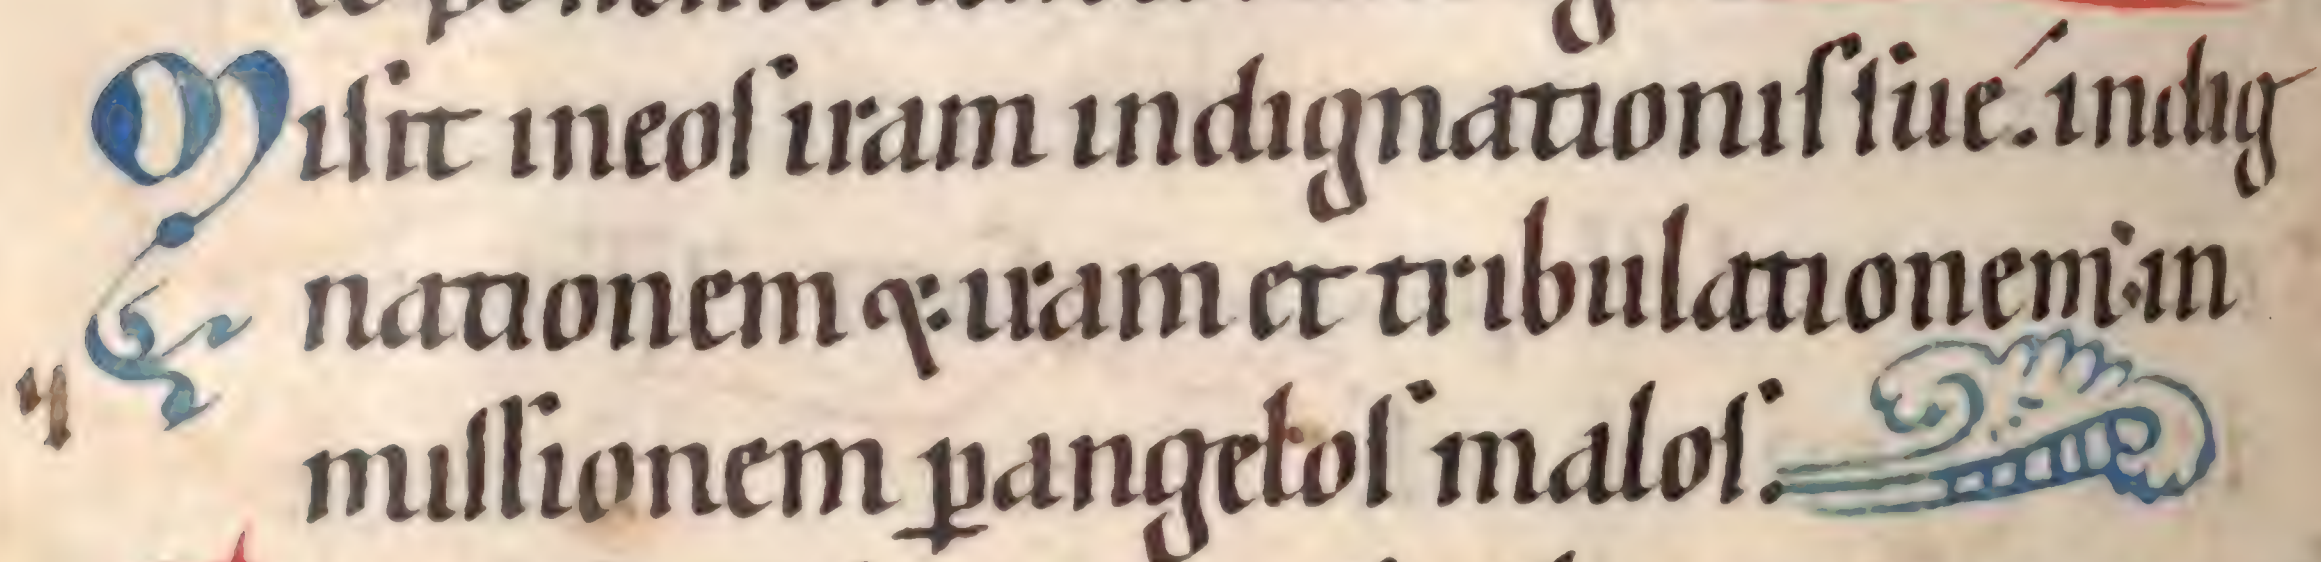 Misit in eos iram indignationis sue. indig
nationem q: iram et tribulationem. in
missionem ꝑ angelos malos.